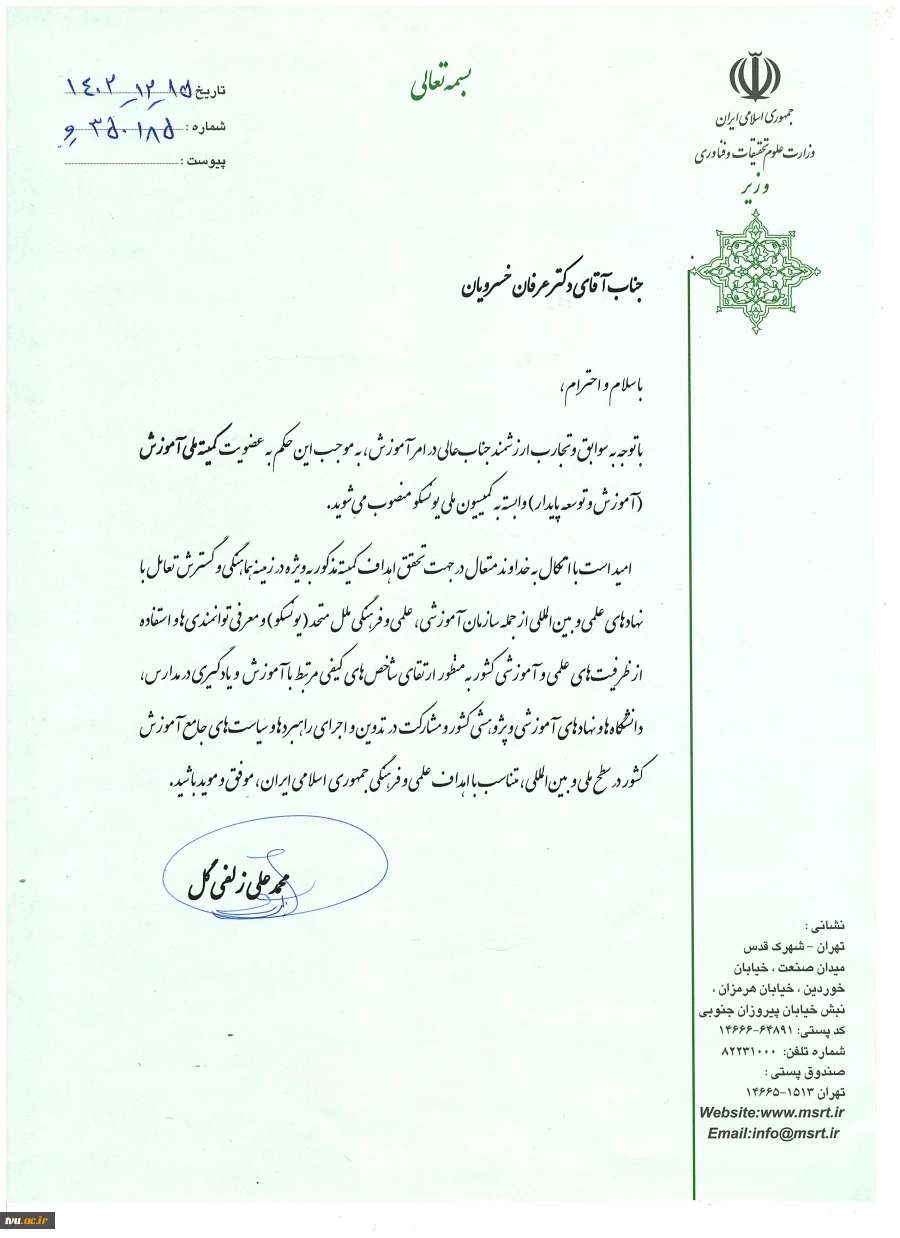 بسمه تعالی
جمهوری اسلامی ایران
وزارت علوم تحقیقات و فناوری
وزیر
تاریخ ۱۴۰۲-۱۲-۱۵
شماره : ۳۵۰۱۸۵ و
پیوست :
جناب آقای دکتر عرفان خسرویان
با سلام و احترام،
با توجه به سوابق و تجارب ارزشمند جناب‌عالی در امر آموزش، به موجب این حکم به عضویت کمیته ملی آموزش
(آموزش و توسعه پایدار) وابسته به کمیسیون ملی یونسکو منصوب می‌شوید.
امید است با اتکال به خداوند متعال در جهت تحقق اهداف کمیته مذکور به ویژه در زمینه هماهنگی و گسترش تعامل با
نهادهای علمی و بین‌المللی از جمله سازمان آموزشی، علمی و فرهنگی ملل متحد (یونسکو) و معرفی توانمندی‌ها و استفاده
از ظرفیت‌های علمی و آموزشی کشور به منظور ارتقای شاخص‌های کیفی مرتبط با آموزش و یادگیری در مدارس،
دانشگاه‌ها و نهادهای آموزشی و پژوهشی کشور و مشارکت در تدوین و اجرای راهبردها و سیاست‌های جامع آموزش
کشور در سطح ملی و بین‌المللی، متناسب با اهداف علمی و فرهنگی جمهوری اسلامی ایران، موفق و موید باشید.
محمدعلی زلفی گل
نشانی :
تهران - شهرک قدس
میدان صنعت ، خیابان
خوردین ، خیابان هرمزان ،
نبش خیابان پیروزان جنوبی
کد پستی: ۶۴۸۹۱-۱۴۶۶۶
شماره تلفن: ۸۲۲۳۱۰۰۰
صندوق پستی :
تهران ۱۵۱۳-۱۴۶۶۵
Website:www.msrt.ir
Email:info@msrt.ir
tvu.ac.ir